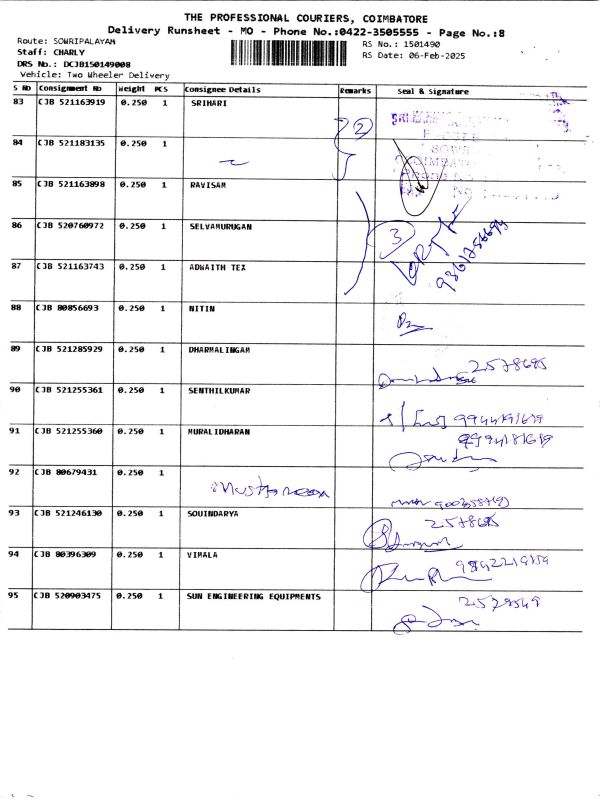 THE PROFESSIONAL COURIERS, COIMBATORE
Delivery Runsheet - MO - Phone No.:0422-3505555 - Page No.:8
Route: SOWRIPALAYAM
RS No.: 1501490
Staff: CHARLY
RS Date: 06-Feb-2025
DRS No.: DCJB150149008
Vehicle: Two Wheeler Delivery
S No Consignment No Weight PCS Consignee Details Remarks Seal & Signature
83 CJB 521163919 0.250 1 SRIHARI
2
84 CJB 521183135 0.250 1
85 CJB 521163898 0.250 1 RAVISAM
86 CJB 520760972 0.250 1 SELVAMURUGAN
3
87 CJB 521163743 0.250 1 ADWAITH TEX
88 CJB 80856693 0.250 1 NITIN
89 CJB 521285929 0.250 1 DHARMALINGAM
2578695
90 CJB 521255361 0.250 1 SENTHILKUMAR
91 CJB 521255360 0.250 1 MURALIDHARAN
92 CJB 80679431 0.250 1
93 CJB 521246130 0.250 1 SOUINDARYA
2578695
94 CJB 80396309 0.250 1 VIMALA
95 CJB 520903475 0.250 1 SUN ENGINEERING EQUIPMENTS